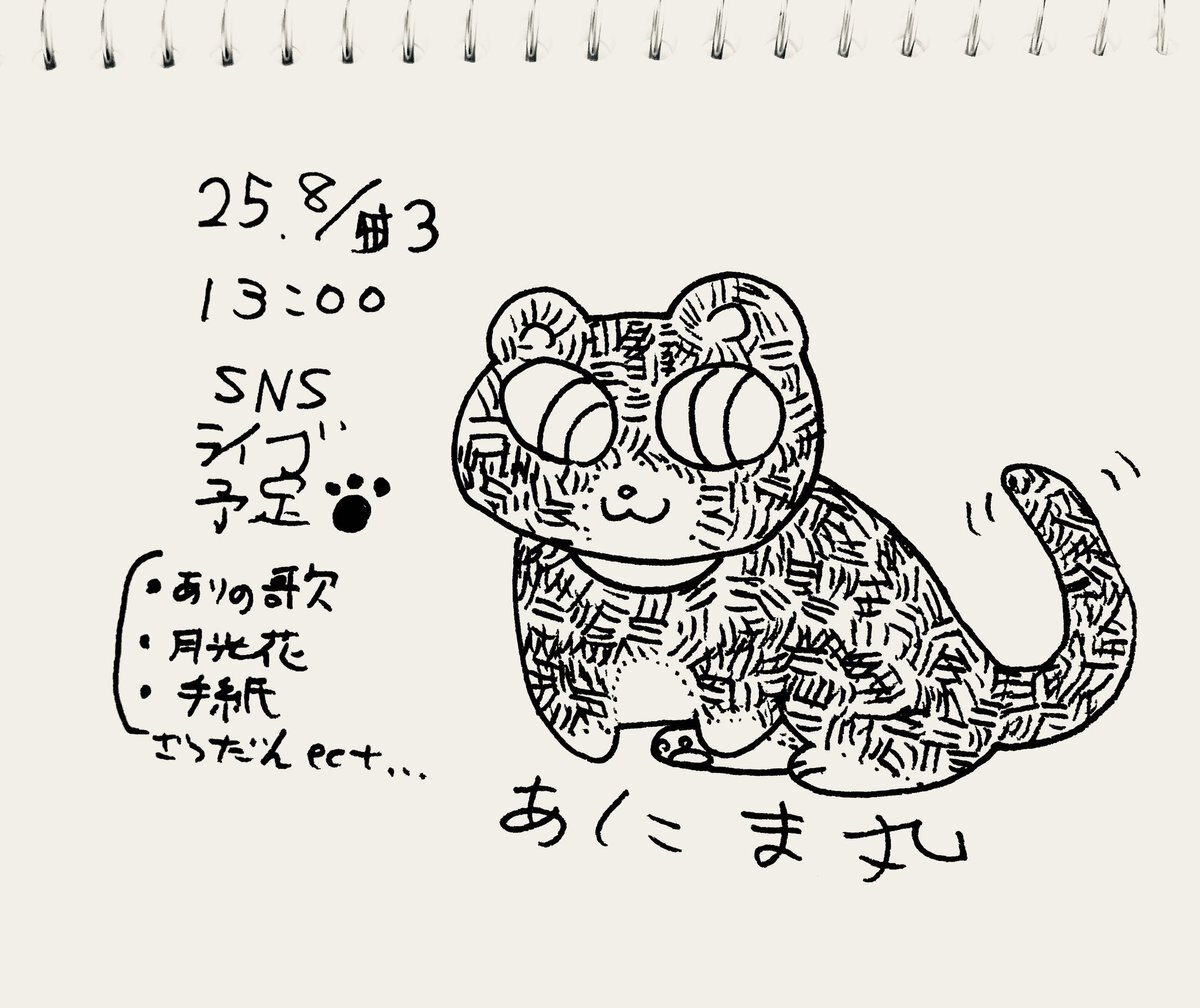 25.8/3
13:00
SNS
ライブ
予定
・ありの歌
・月光花
・手紙
さらだん ect...
あにま丸